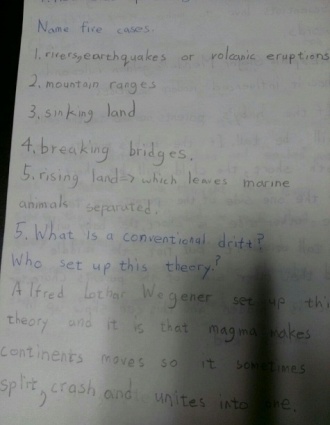 Name five cases.
1. rivers, earthquakes or volcanic eruptions
2. mountain ranges
3. sinking land
4. breaking bridges.
5. rising land => which leaves marine
animals separated.
5. What is a conventional drift?
Who set up this theory?
Alfred Lothar Wegener set up this
theory and it is that magma makes
continents moves so it sometimes
split, crash and unites into one.